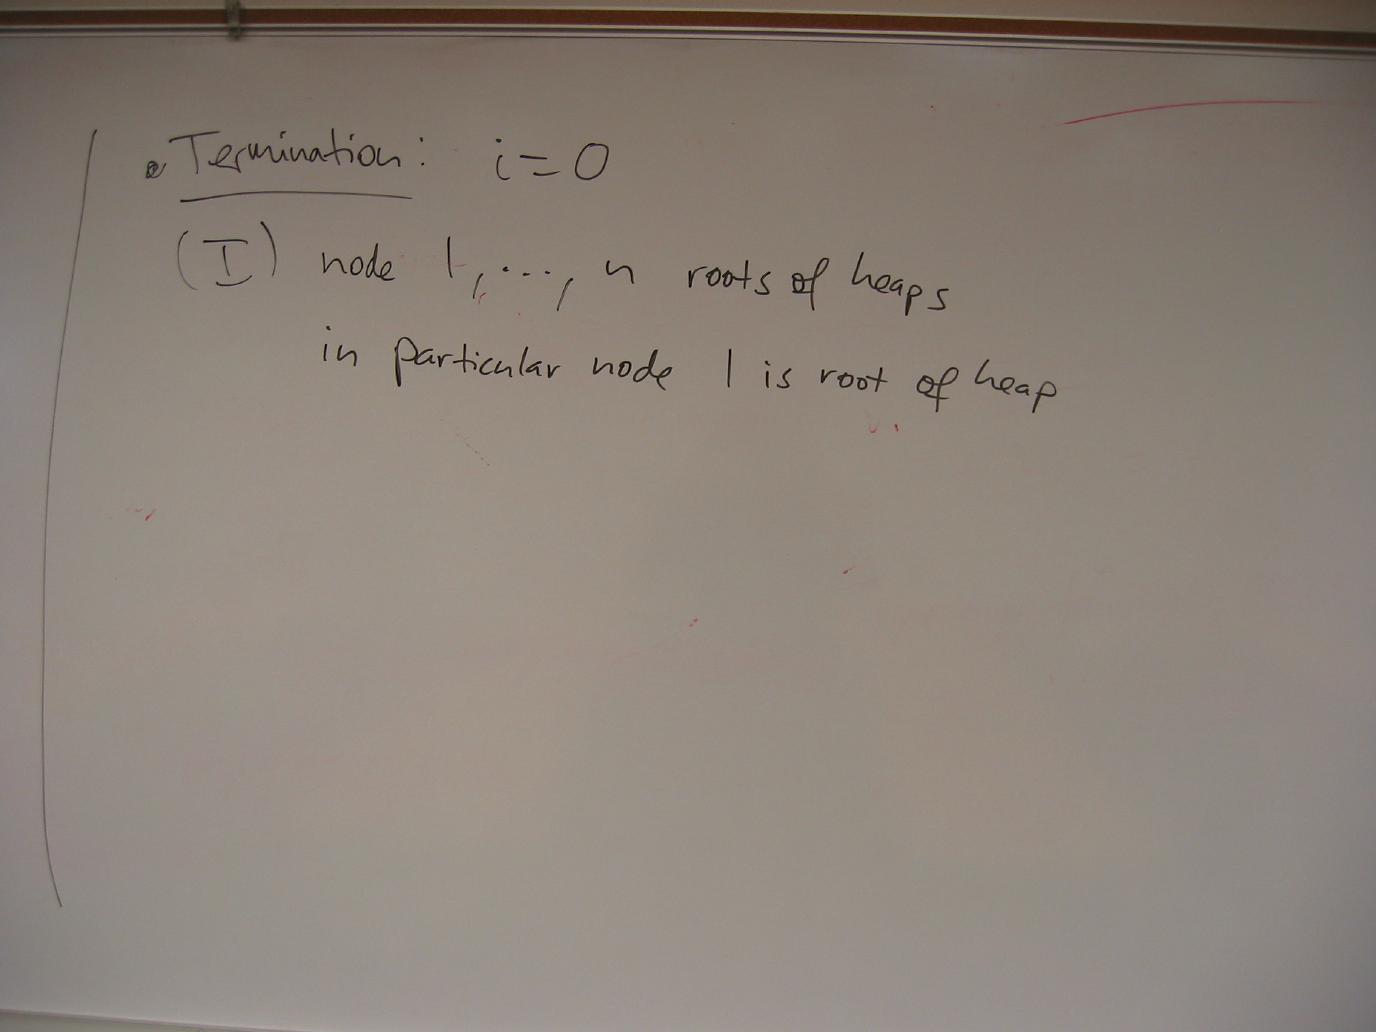 • Termination: i = 0
(I) node 1, ..., n roots of heaps
in particular node 1 is root of heap